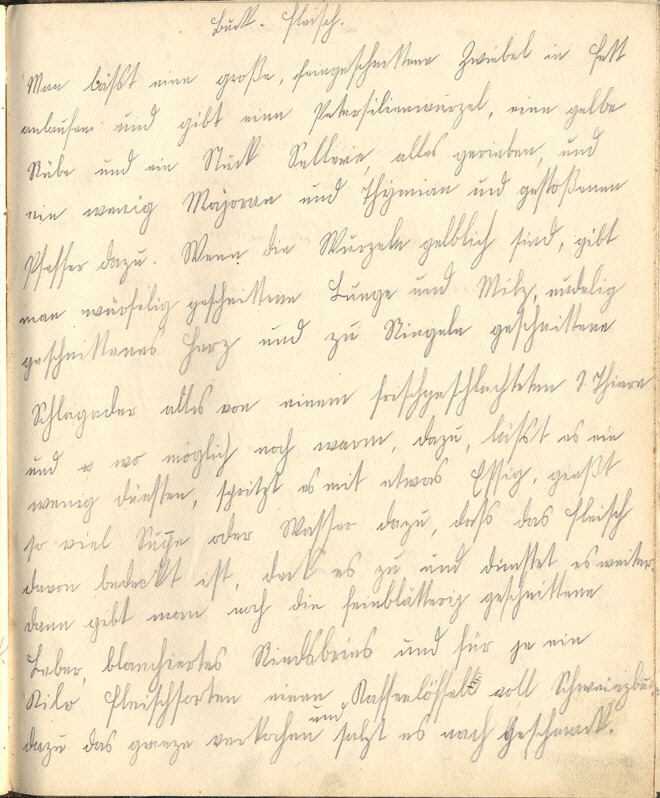 Bruckfleisch.
Man läßt eine große, feingeschnittene Zwiebel in Fett
anlaufen und gibt eine Petersilienwurzel, eine gelbe
Rübe und ein Stück Sellerie, alles gerieben, und
ein wenig Majoran und Thymian und gestoßenen
Pfeffer dazu. Wenn die Wurzeln gelblich sind, gibt
man würfelig geschnittene Lunge und Milz, nudelig
geschnittenes Herz und zu Ringeln geschnittene
Schlagader alles von einem frischgeschlachteten Thiere
und wo möglich noch warm, dazu, läßt es ein
wenig dünsten, spritzt es mit etwas Essig, gießt
so viel Suppe oder Wasser dazu, daß das Fleisch
davon bedeckt ist, deckt es zu und dünstet es weiter
dann gibt man noch die feinblätterig geschnittene
Leber, blanchiertes Rindsbries und für je ein
Kilo Fleischsorten einen Kaffeelöffel voll
dazu das ganze verkochen und salzt es nach Geschmack.